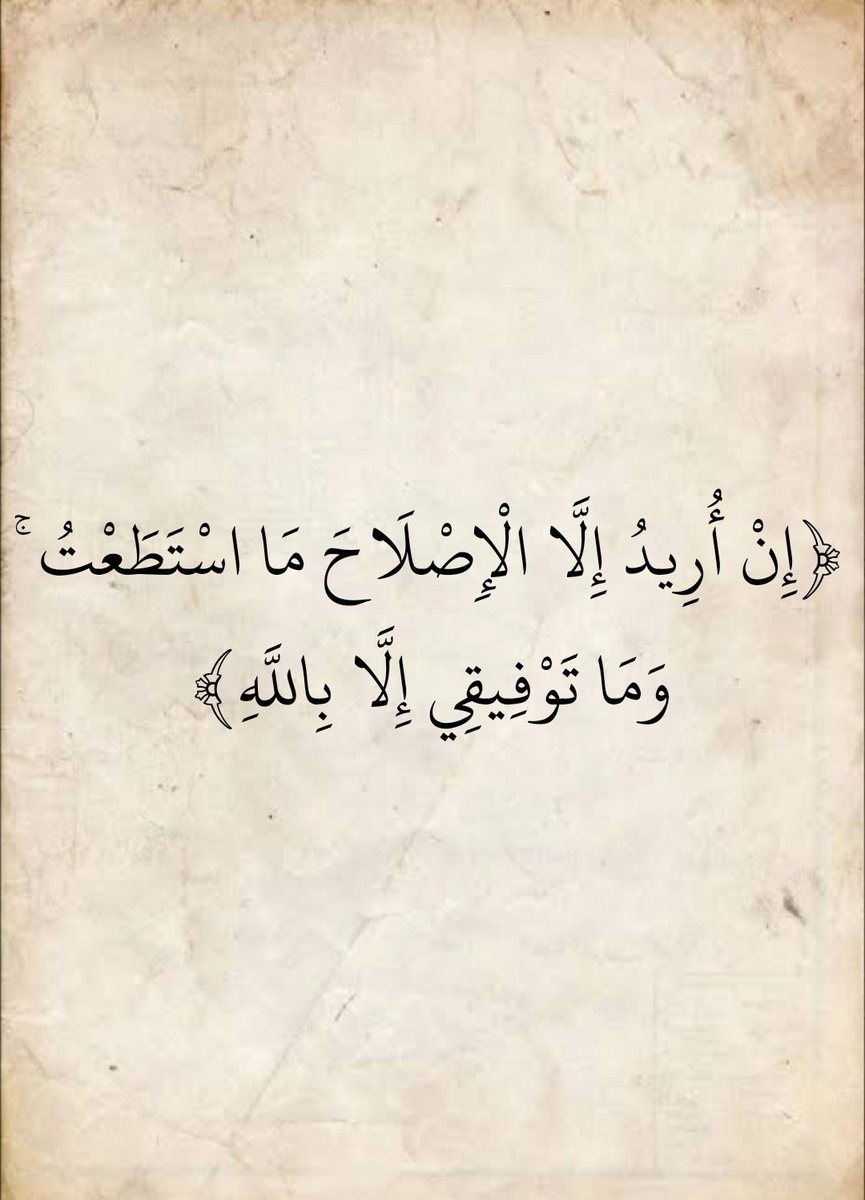 ﴿إِنْ أُرِيدُ إِلَّا الْإِصْلَاحَ مَا اسْتَطَعْتُ ۚ
وَمَا تَوْفِيقِي إِلَّا بِاللَّهِ﴾